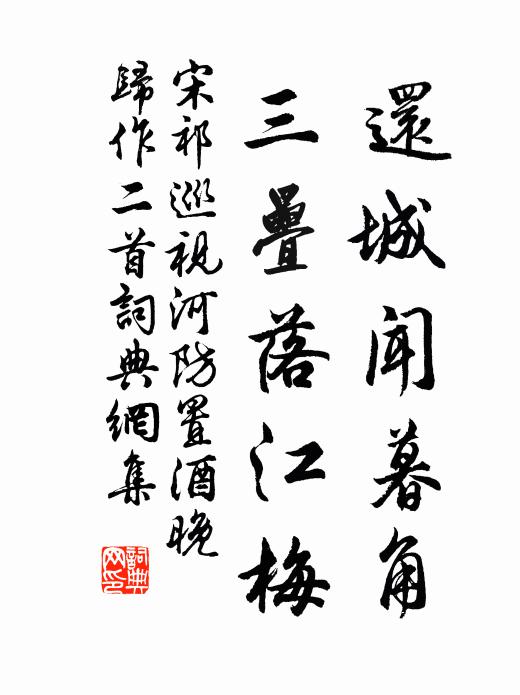 還城聞暮角
三疊落江梅
宋祁巡視河防置酒晚
歸作二首詞典網集
詞典網印